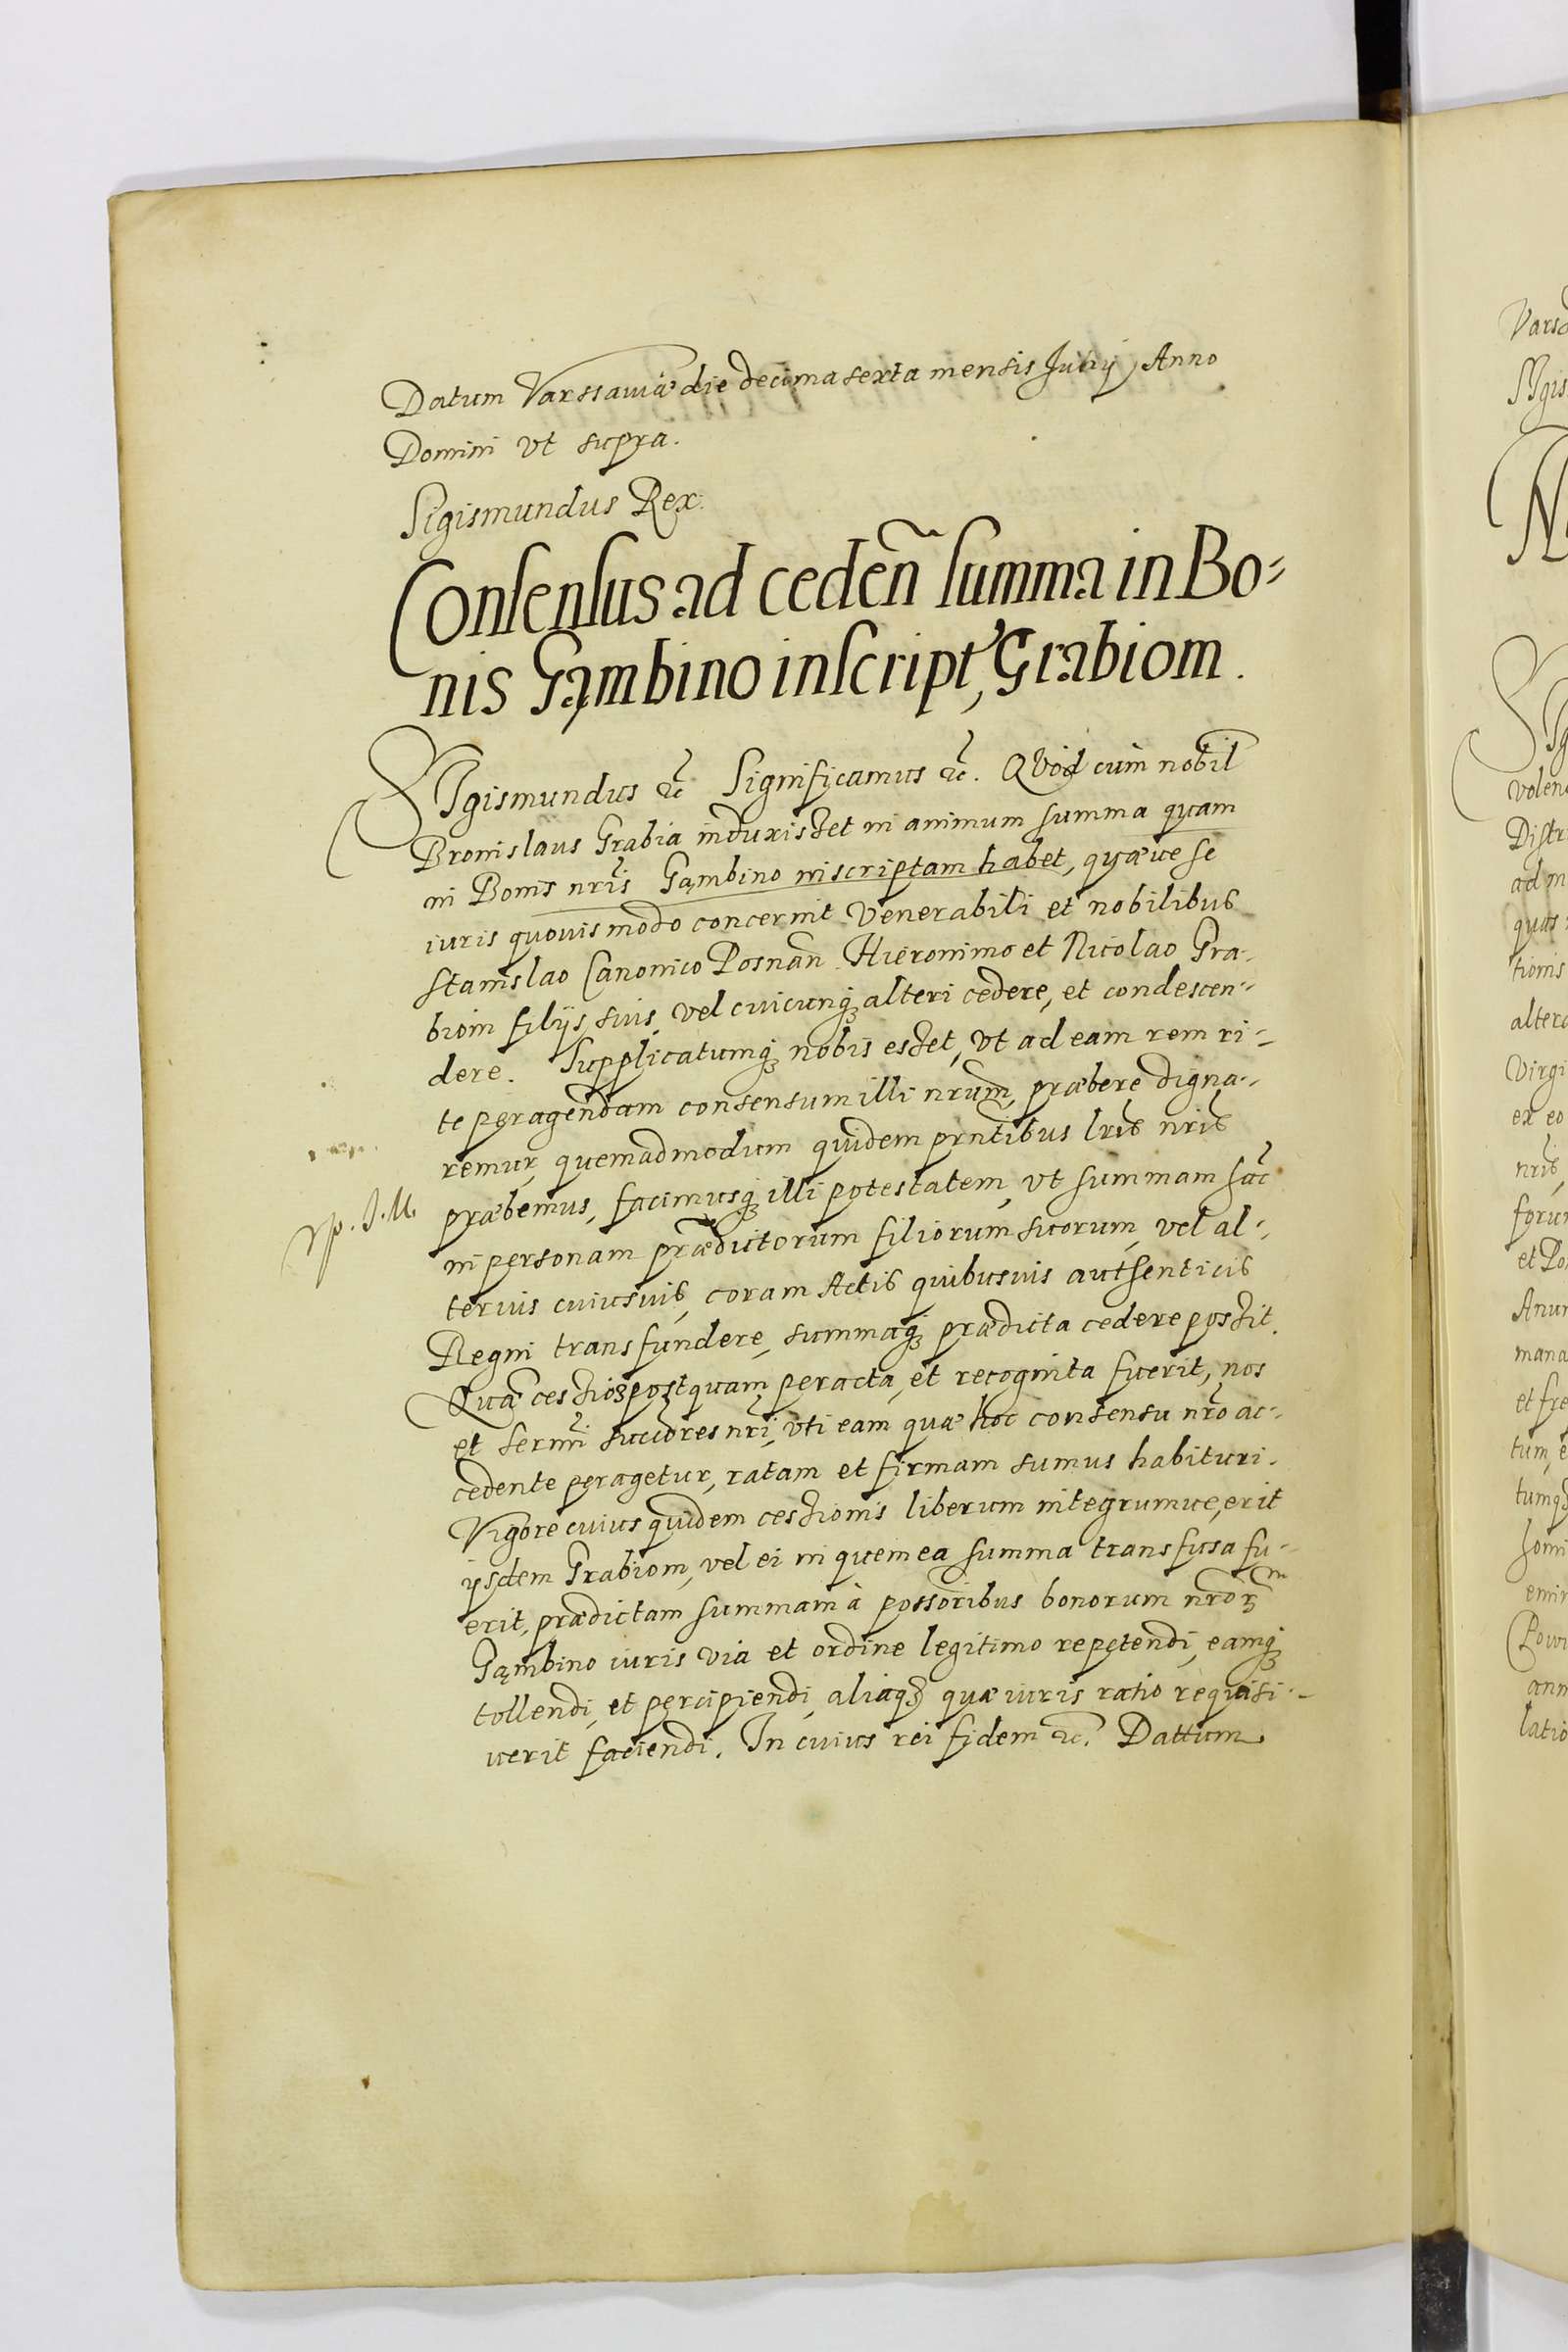 Datum Varssauiæ die decima sexta mensis Julij Anno
Domini vt supra.
Sigismundus Rex.
Consensus ad ceden̄ summa in Bo=
nis Gąmbino inscript, Grabiom.
SIgismundus &c Significamus &c. Quod cum nobil
Bronislaus Grabia induxisset in animum summa quam
in Bonis nr̄is Gąmbino inscriptam habet, quæue se
iuris quouis modo concernit Venerabili et nobilibus
Stanislao Canonico Posnan̄ Hieronimo et Nicolao Gra-
biom filijs suis, vel cuicunqꝫ alteri cedere, et condescen-
dere. Supplicatumqꝫ nobis esset, vt ad eam rem ri-
te peragendam consensum illi nr̄um, præbere digna-
remur, quemadmodum quidem prn̄tibus lr̄is nr̄is
præbemus, facimusqꝫ illi potestatem, vt summam hāc
in personam prædictorum filiorum suorum, vel al-
terius cuiusuis, coram Actis quibusuis authenticis
Regni transfundere, summaqꝫ prædicta cedere possit.
Quæ cessio postquam peracta, et recognita fuerit, nos
et serm̄i succ̄ores nr̄i, vti eam quæ hoc consensu nr̄o ac-
cedente peragetur, ratam et firmam sumus habituri.
Vigore cuius quidem cessionis liberum integrumue, erit
ijsdem Grabiom, vel ei in quem ea summa transfusa fu-
erit, prædictam summam à poss̄oribus bonorum nr̄orꝫ
Gąmbino iuris via et ordine legitimo repetendi, eamqꝫ
tollendi, et percipiendi, aliaqꝫ quæ iuris ratio requisi-
uerit faciendi. In cuius rei fidem &c. Dattum
Varsa
SIgis
SIg
volen
Distr
ad m
quas
tionis
altera
Virgi
ex eo
nris,
et Po
mana
tum, e
tumqꝫ
homi
latio